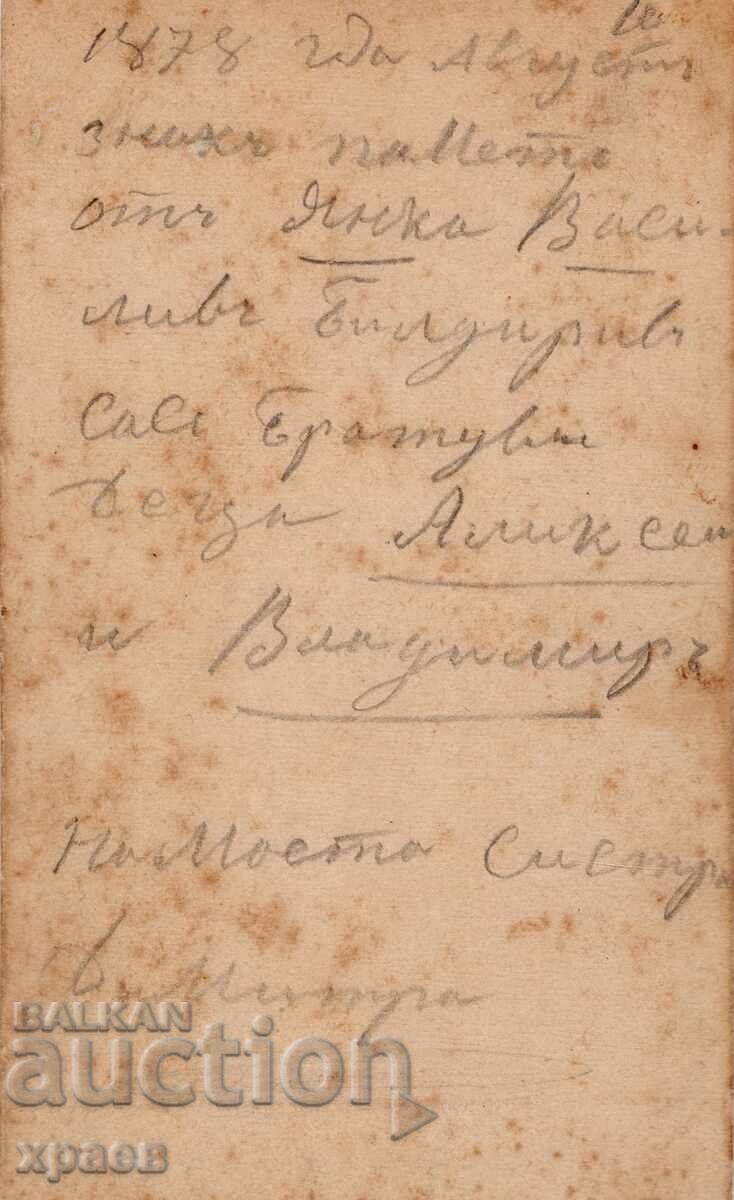 1878 года Августъ
знакъ паметь
отъ Янка Васи-
ливъ Билдиривъ
сасъ Братуви
Деца Аликсен
и Владимиръ
на Моста Систра
Димитра
BALKAN
auction
храев